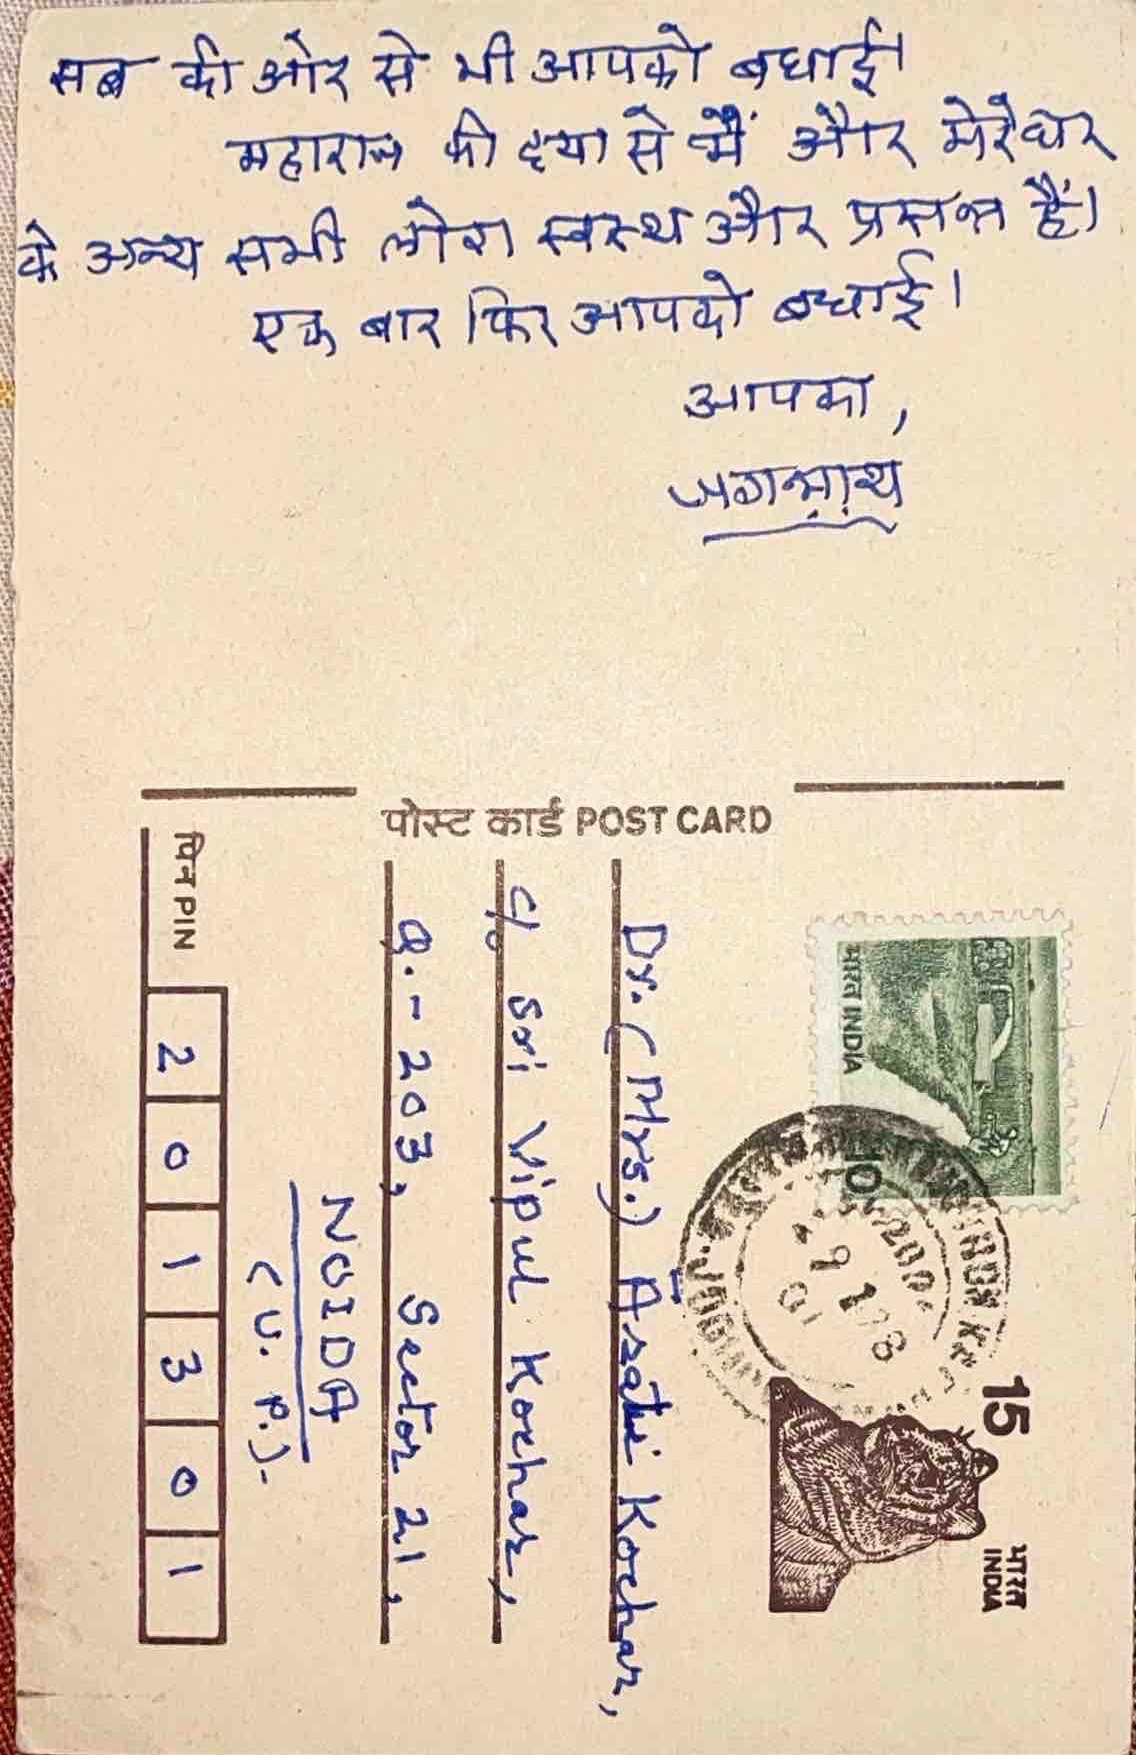 सब की ओर से भी आपको बधाई।
महाराज की दया से मैं और मेरे घर
के अन्य सभी लोग स्वस्थ और प्रसन्न हैं।
एक बार फिर आपको बधाई।
आपका,
जगन्नाथ
पोस्ट कार्ड POST CARD
भारत INDIA
10
15
भारत
INDIA
Dr. (Mrs.) Asatī Kochar,
c/o Sri Vipul Kochar,
Q.-203, Sector 21,
NOIDA
(U.P.)-
पिन PIN 2 0 1 3 0 1